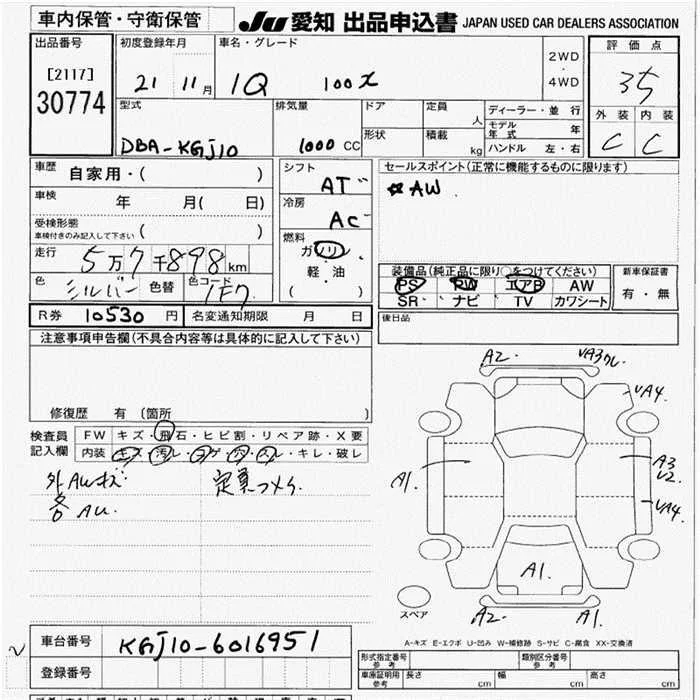 車内保管・守衛保管
JU 愛知 出品申込書 JAPAN USED CAR DEALERS ASSOCIATION
出品番号
[2117]
30774
初度登録年月
21 11月
車名・グレード
IQ 100X
2WD
・
4WD
評価点
35
外装 内装
C C
型式
DBA-KGJ10
排気量
1000 CC
ドア
形状
定員
人
積載
kg
ディーラー・並行
モデル年式 年
ハンドル 左・右
車歴
自家用・( )
車検
年 月( 日)
受検形態
車検付きのみ記入して下さい ( )
走行
5万7千898km
色
シルバー
色替
色コード
1F7
シフト
AT
冷房
AC
燃料
ガソリン
・
軽・油
( )
セールスポイント(正常に機能するものに限ります)
☆AW
装備品(純正品に限り○をつけてください)
PS PW エアB AW
SR ナビ TV カワシート
新車保証書
有・無
R券 10530円
名変通知期限 月 日
後日品
注意事項申告欄(不具合内容等は具体的に記入して下さい)
修復歴 有 〔箇所 〕
検査員記入欄
FW キズ・飛石・ヒビ割・リペア跡・X要
内装 キズ・汚レ・コゲ・穴・スレ・キレ・破レ
外AWキズ
各AU.
定員ツメイ
A2.
VA3クレ
VA4.
A1.
A3
V2
VA4.
A1.
A2-
A1.
スペア
A-キズ E-エクボ U-凹み W-補修跡 S-サビ C-腐食 XX-交換済
車台番号
KGJ10-6016951
登録番号
形式指定番号
参考
類別区分番号
参考
車庫証明用
参考
長さ cm
幅 cm
高さ cm